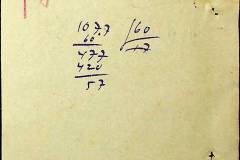 1077 60
60 17
477
420
57